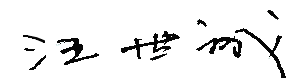 汪世诚